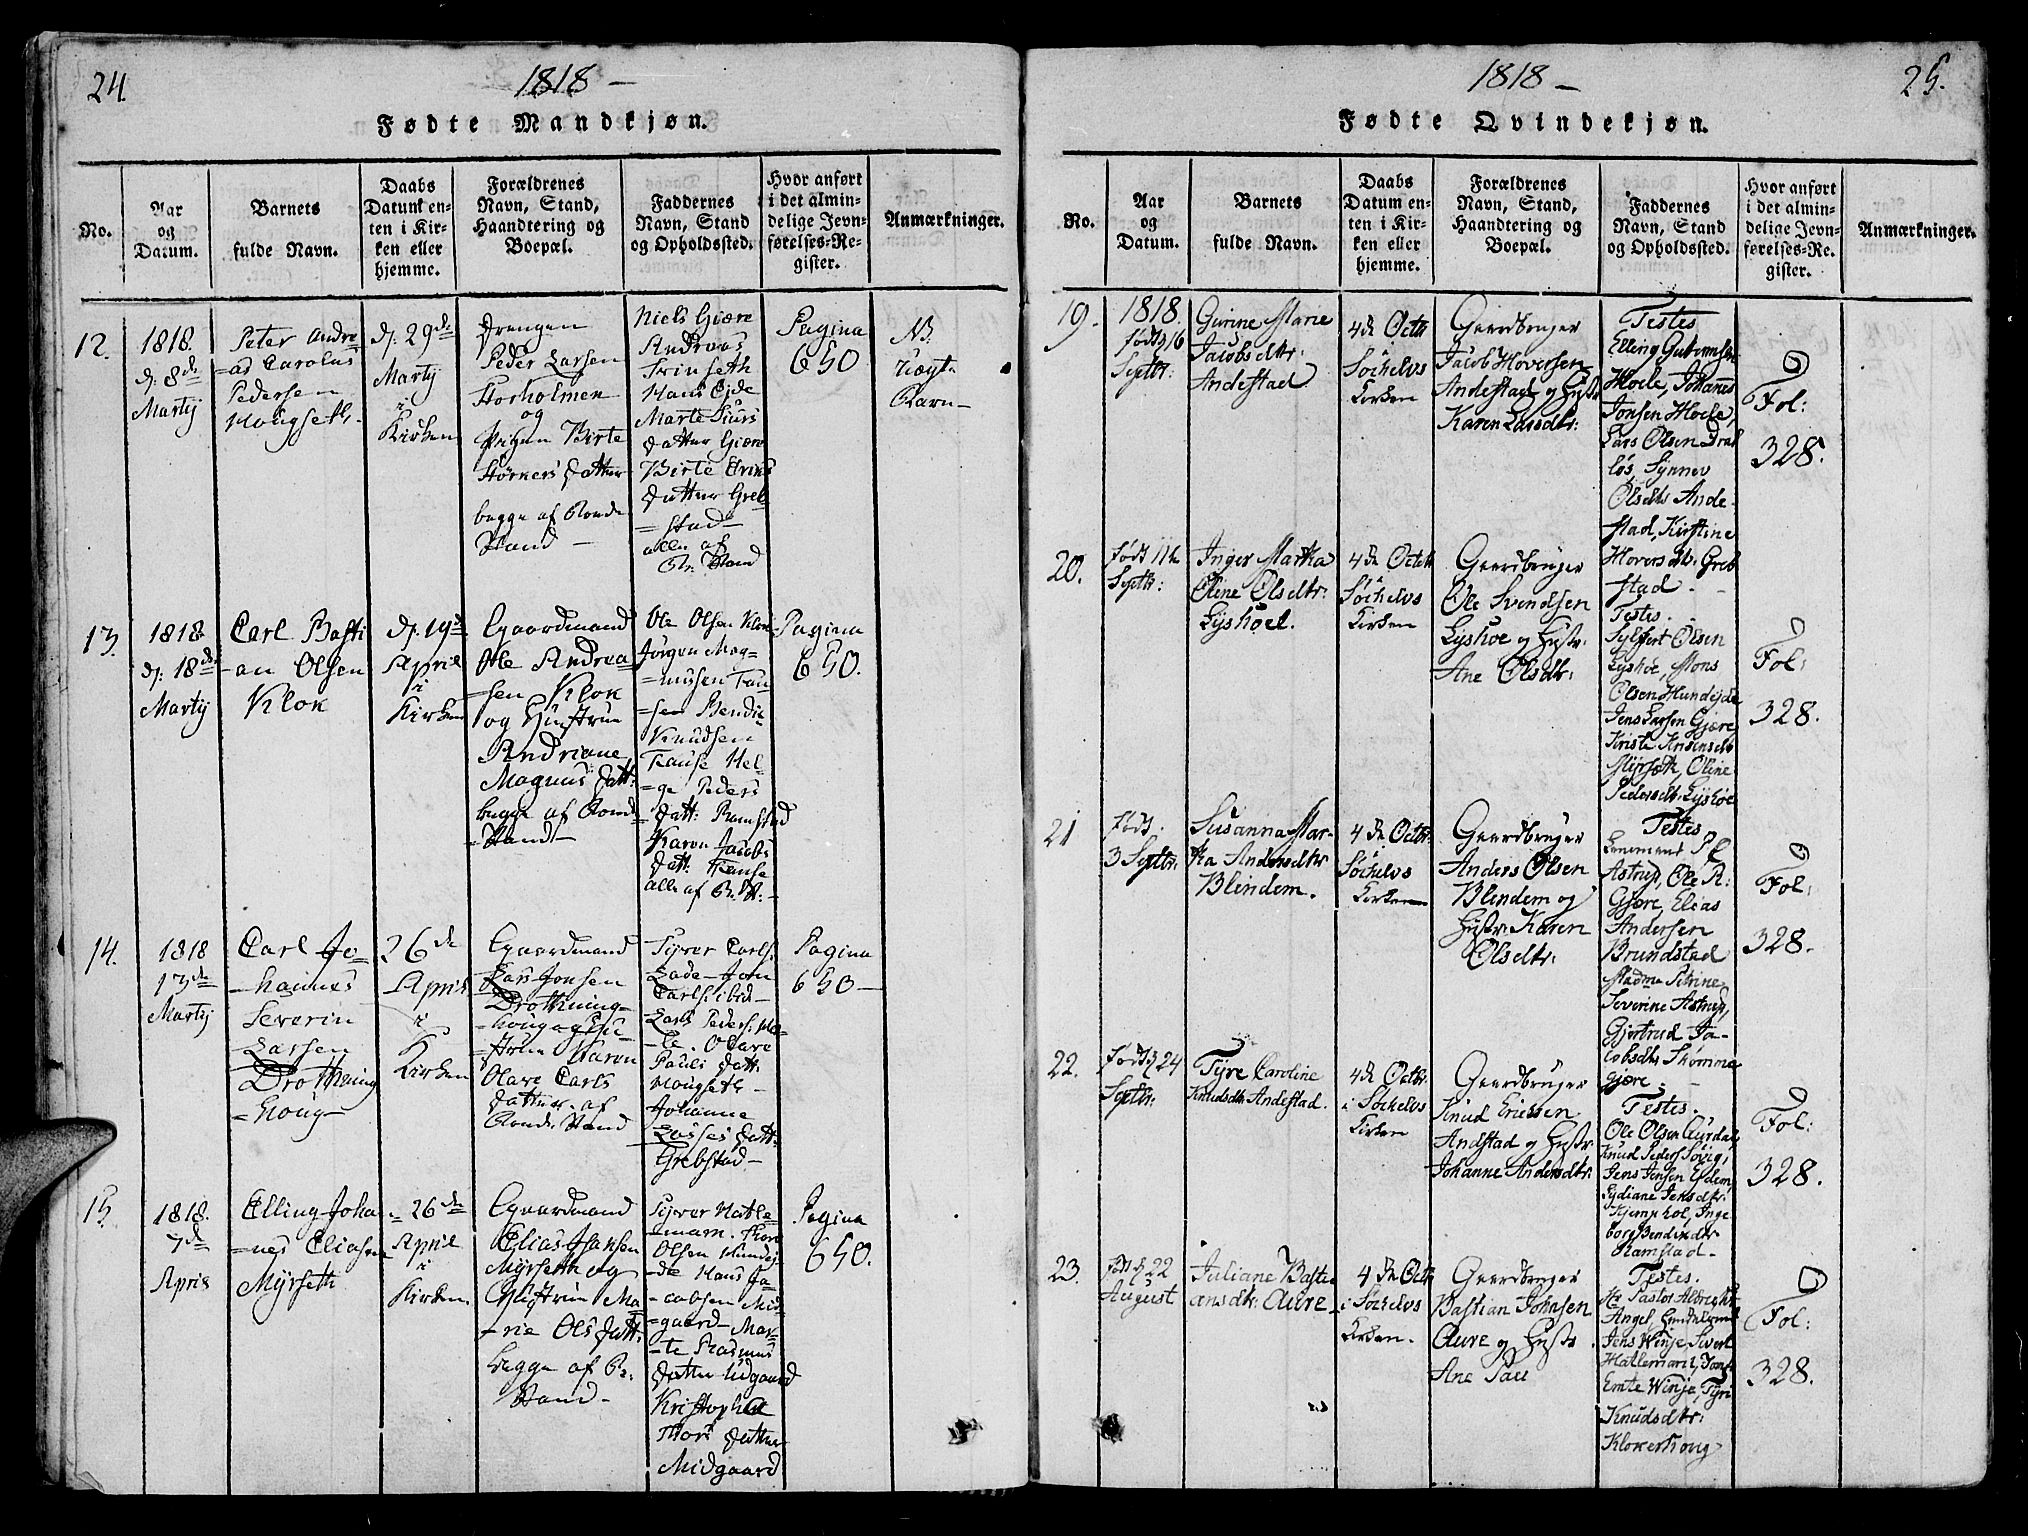 24.
1818 –
Fødte Mandkjøn.
No.
Aar
og
Datum.
Barnets
fulde Navn.
Daabs
Datum en-
ten i Kir-
ken eller
hjemme.
Forældrenes
Navn, Stand,
Haandtering og
Boepæl.
Faddernes
Navn, Stand
og Opholdssted.
Hvor anført
i det almin-
delige Jevn-
førelses-Re-
gister.
Anmærkninger.
12.
1818.
d. 8de
Martij
Peter Andre
=as Carolus
Pedersen
Hougseth.
d. 29de
Martij
i
Kirken
Drengen
Peder Larsen
Storholmen
og
Pigen Birte
Størkers Datter
begge af Bonde
Stand –
Niels Giære
Andreas
Trinseth
Hans Eide
Marte Siurs
Datter Giære
Birte Eriks
Datter Greb
=stad –
alle af
Br. Stand
Pagina
650
NB.
Uægt
Barn –
13.
1818.
d. 18de
Martij
Carl Basti
=an Olsen
Klok
d. 19de
April
i
Kirken
Gaardmand
Ole Andrea
=sen Klok
og Hustrue
Andriane
Magnus Datt:
begge af Bond
=Stand –
Ole Olsen Klok
Jørgen Mag=
=nusen Tau
=sen Bendix
Knudsen
Tause Hel=
=ge Peders
Datt: Ramstad
Karen Jacobs
Datt: Tause
alle af B. St: –
Pagina
650.
14.
1818
13de
Martij
Carl Jo=
=hannes
Severin
Larsen
Drotning
=houg –
26de
April
i
Kirken
Gaardmand
Lars Jonsen
Drotning=
=houg og Hu=
=strue Karen
Olave Carls
Datter af
Bonde Stand
Syver Carls:
Lade – Jon
Carls: ibid –
Lars Peders: Ho=
=le. Olave
Pauls Datt:
Hougseth –
Johanne
Lasses Datt:
Grebstad –
Pagina
650 –
15.
1818.
7de
April
Elling Joha
=nes Eliasen
Myrseth
= 26de
April
i
Kirken.
Gaardmand
Elias Hansen
Myrseth og
Hustrue Ma
=rie Ols Datt:
begge af B:
Stand –
Syver Hatle=
=mark. Thore
Olsen Hundej=
=de Hans Ja=
=cobsen Mid
=gaard – Mar=
=te Rasmus
Datter Udgaard
Kristophea
Thors Datter
Midgaard
Pagina
650.
1818 –
25.
Fødte Qvindekjøn.
No.
Aar
og
Datum.
Barnets
fulde Navn.
Daabs
Datum en-
ten i Kir-
ken eller
hjemme.
Forældrenes
Navn, Stand,
Haandtering og
Boepæl.
Faddernes
Navn, Stand
og Opholdssted.
Hvor anført
i det almin-
delige Jevn-
førelses-Re-
gister.
Anmærkninger.
19.
1818.
Født d. 6
Septbr:
Gurine Marie
Jacobsdtr:
Andestad
4de Octb
Söchelvs
Kirken
Gaardbruger
Jacob Hoversen
Andestad og Hustr
Karen Larsdtr:
Testes
Elling Guttormsen
Hoele, Johannes
Jonsen Hoele,
Lars Olsen Drab
løs, Synnev
Olsdtr Ande-
stad, Kirstine
Hoversdtr: Greb
stad. –
Fol:
328.
20.
Født 11te
Septbr:
Inger Martha
Oline Olsdtr:
Lyshoel.
4de Octb
Söchelvs
Kirken
Gaardbruger
Ole Svendsen
Lyshoe og Hustr:
Ane Olsdtr:
Testes.
Sylfert Olsen
Lyshoe, Mons
Olsen Hundeide
Jens Larsen Gjære
Kirste Knudsdtr
Myrseth, Oline
Pedersdtr: Lyshoe
Fol:
328.
21
Født.
3 Septbr:
Susanna Mar-
tha Andersdtr
Blindem.
4de Octbr:
Söchelvs
Kirken
Gaardbruger
Anders Olsen
Blindem og
Hustr: Karen
Olsdtr:
Testes
Lensmand P L
Astrup, Ole R:
Gjære, Elias
Andersen
Brundstad
Madme Petrine
Severine Astrup,
Gjertrud Ja-
cobsdtr Skømme
gjære. –
Fol:
328.
22.
Født d. 24
Septbr:
Tyre Caroline
Knudsdtr Andestad.
4de Octbr:
i Söchelvs
Kirken
Gaardbruger
Knud Ericksen
Andstad og Hustr
Johanne Andersdtr:
Testes.
Ole Olsen Aurdal,
Knud Peders Søvig,
Jens Jensen Esdem,
Lydiane Jensdtr:
Kjempehol, Inge
borg Bendixdtr
Ramstad –
Fol:
328.
23.
Født d. 22
August
Juliane Basti
ansdtr: Aure
4de Octb
i Söchelvs
Kirken.
Gaardbruger
Bastian Johnsen
Aure og Hustr
Ane Paul
Testes.
Hr Pastor Albrecht
Angel,
Jens Winje, Sivert
Hatlemark,
Emte Winje, Tyri
Knudsdtr:
Kloverhoug
Fol:
328.